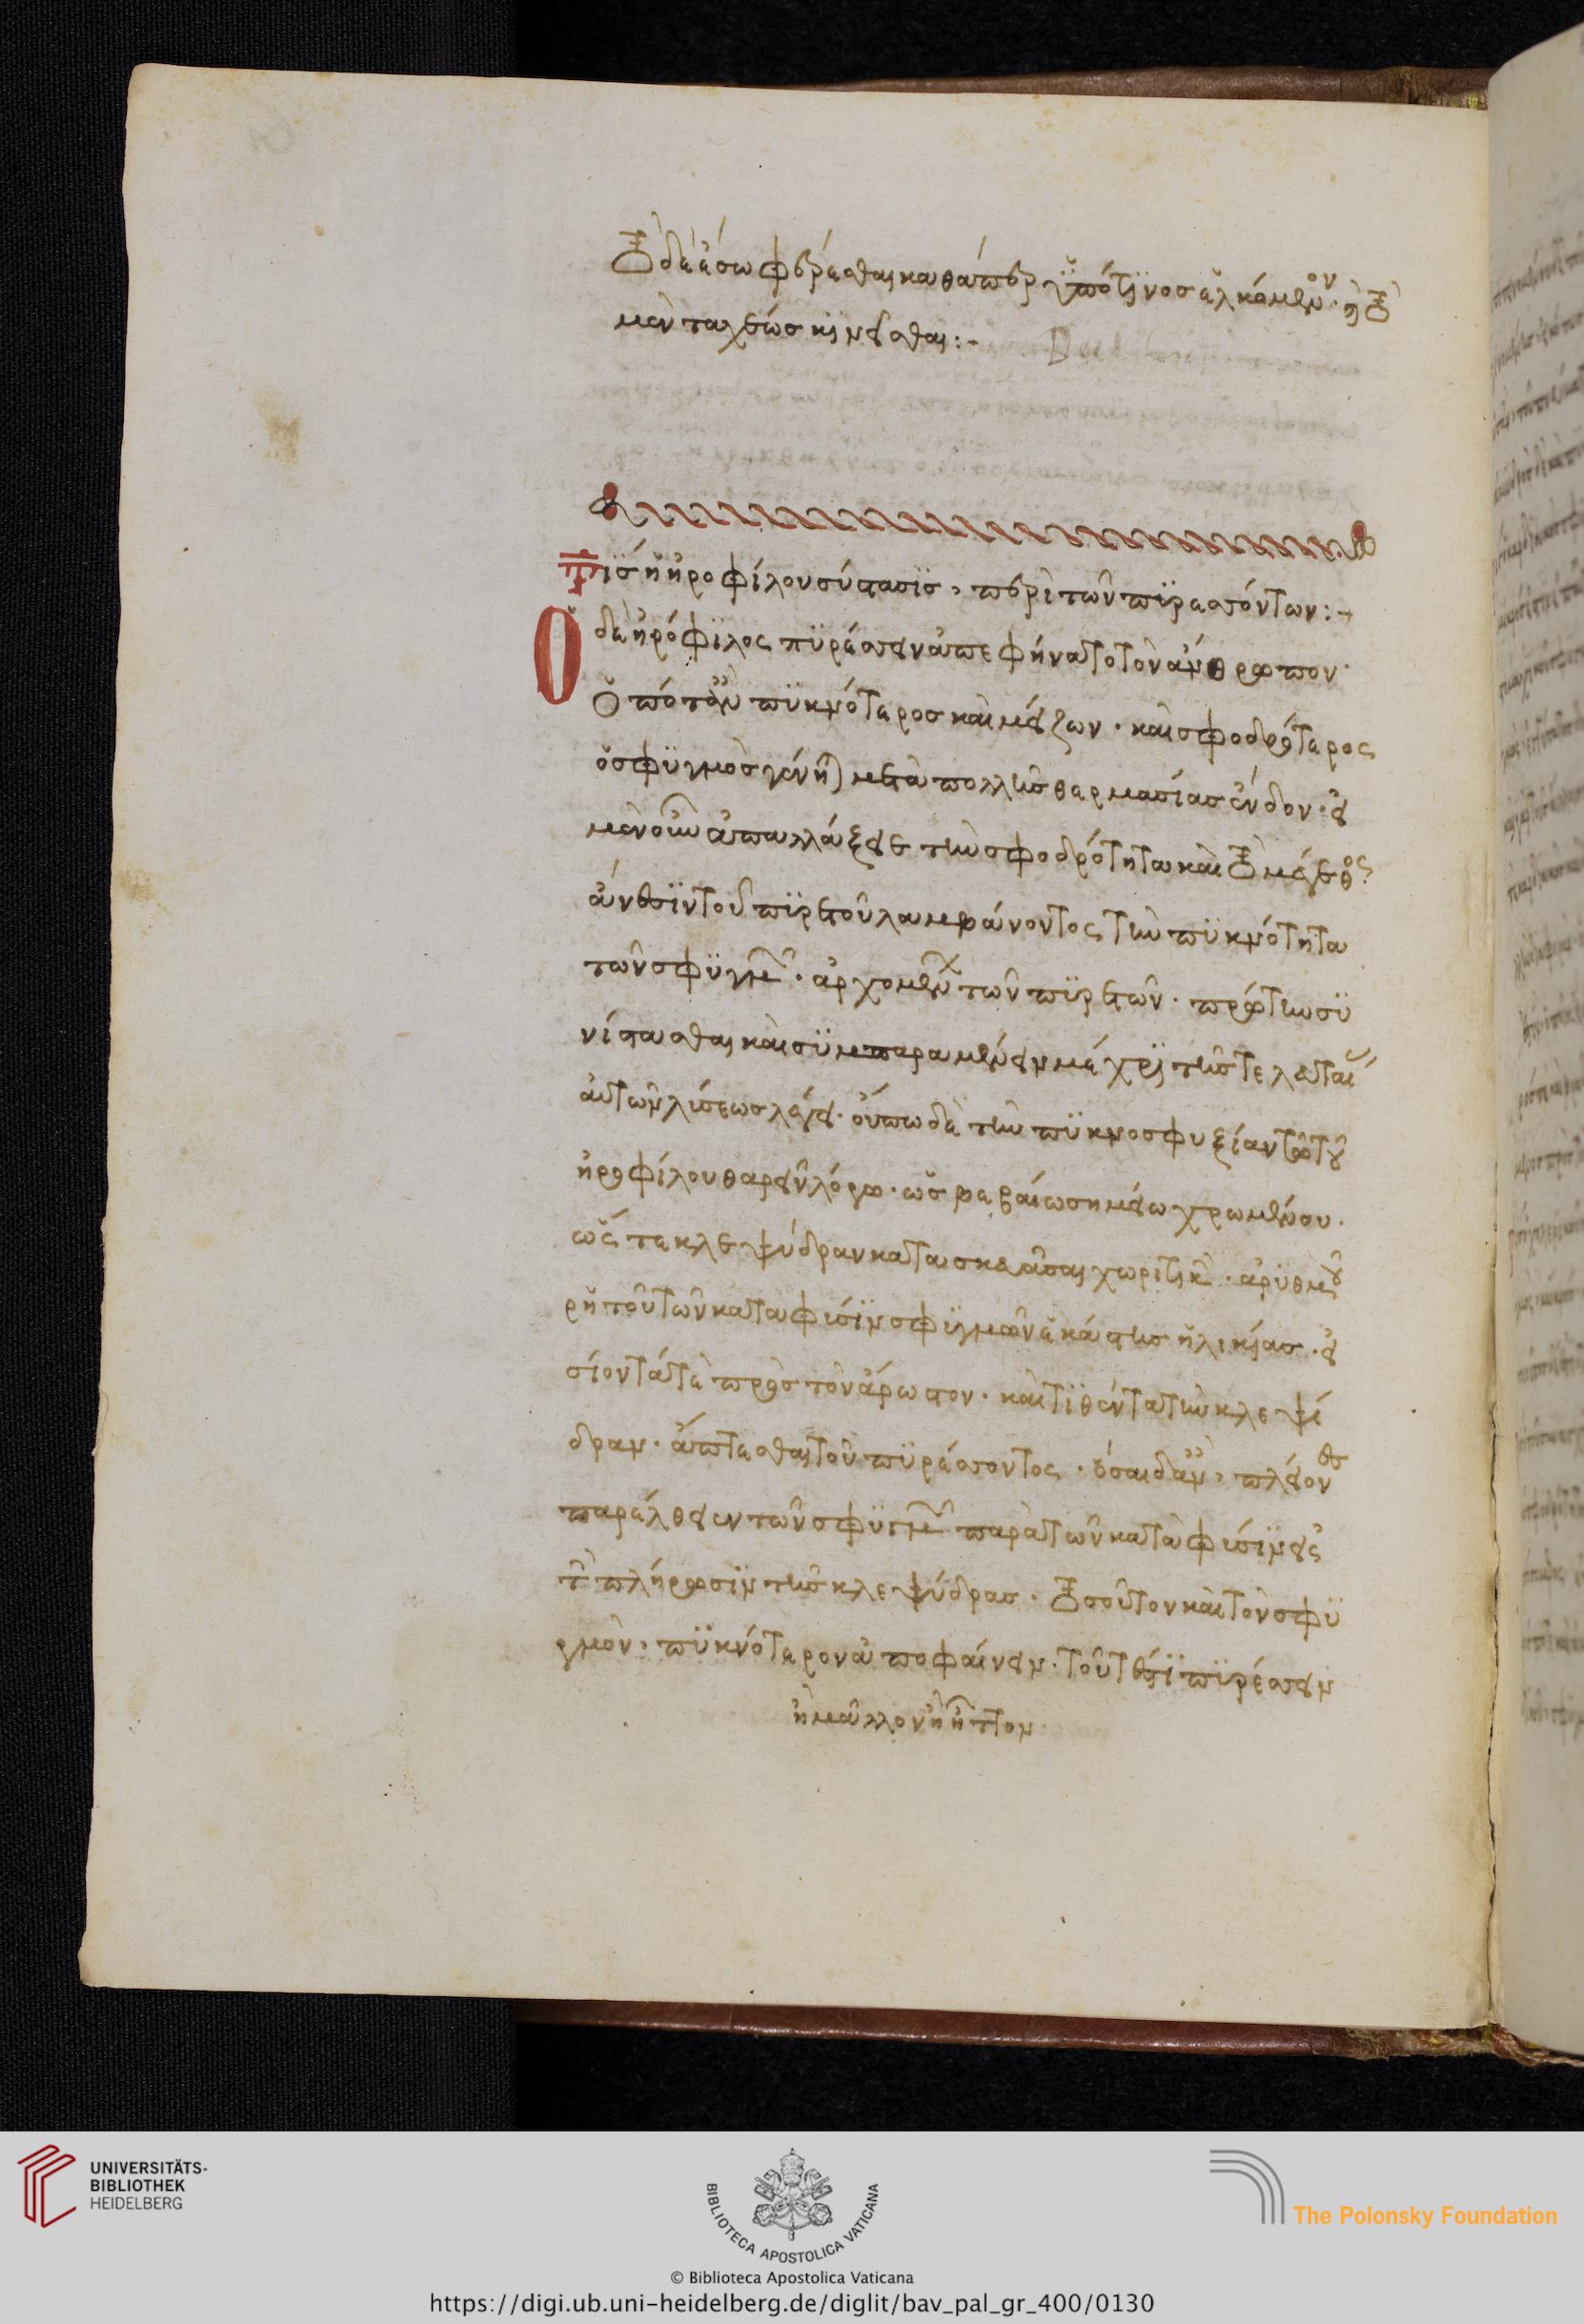 τὸ δὲ ἔσω φέρεσθαι καθάπερ ὑπό τινος ἑλκόμενον. ἢ τὸ
μὲν ταχέως κινεῖσθαι:-
τίς ἡ ἡροφίλου σύστασις, περὶ τῶν πυρεσσόντων:-
Ὁ δὲ ἡρόφιλος πυρέσσειν ἀπεφήνατο τὸν ἄνθρωπον.
ὁπόταν πυκνότερος καὶ μείζων. καὶ σφοδρότερος
ὁ σφυγμὸς γένηται μετὰ πολλῆς θερμασίας ἔνδον. εἰ
μὲν οὖν ἀπαλλάξειε τὴν σφοδρότητα καὶ τὸ μέγεθος
ἄνεσιν τοῦ πυρετοῦ λαμβάνοντος τὴν πυκνότητα
τῶν σφυγμῶν. ἀρχομένων τῶν πυρετῶν. πρώτην συ
νίστασθαι καὶ συμπαραμένειν μέχρι τῆς τελευταίας
αὐτῶν λύσεως λέγει. οὕτω δὲ τὴν πυκνοσφυξίαν
ἡροφίλου θαρρεῖν λόγος. ὡς βεβαίω σημείω χρωμένου.
ὥστε κλεψύδραν κατασκευάσαι χωρητικὴν. ἀριθμοῦ
ῥητοῦ τῶν κατὰ φύσιν σφυγμῶν ἑκάστης ἡλικίας. εἰ
σιόντα τε πρὸς τὸν ἄρρωστον. καὶ τιθέντα τὴν κλεψύ
δραν. ἅπτεσθαι τοῦ πυρέσσοντος. ὅσαι δ' ἂν, πλείονες
παρέλθειεν τῶν σφυγμῶν παρὰ τῶν κατὰ φύσιν εἰς
τὴν πλήρωσιν τῆς κλεψύδρας. τοσοῦτον καὶ τὸν σφυ
γμὸν, πυκνότερον ἀποφαίνειν. τοῦτ' ἐστὶ πυρέσσειν
ἢ μᾶλλον ἢ ἧττον
UNIVERSITÄTS-
BIBLIOTHEK
HEIDELBERG
BIBLIOTECA APOSTOLICA VATICANA
The Polonsky Foundation
© Biblioteca Apostolica Vaticana
https://digi.ub.uni-heidelberg.de/diglit/bav_pal_gr_400/0130